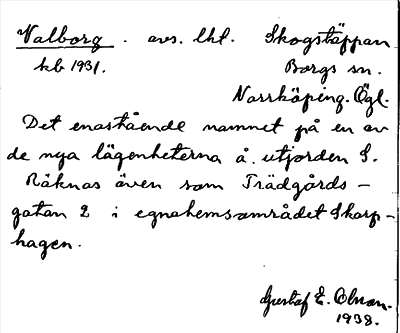 Valborg. avs. lht. Skogstäppan
kb 1931. Borgs sn.
Norrköping. Ögl.
Det enastående namnet på en av
de nya lägenheterna å utjorden S.
Räknas även som Trädgårds-
gatan 2 i egnahemsområdet Skarp-
hagen.
Gustaf E. Olsson.
1938.